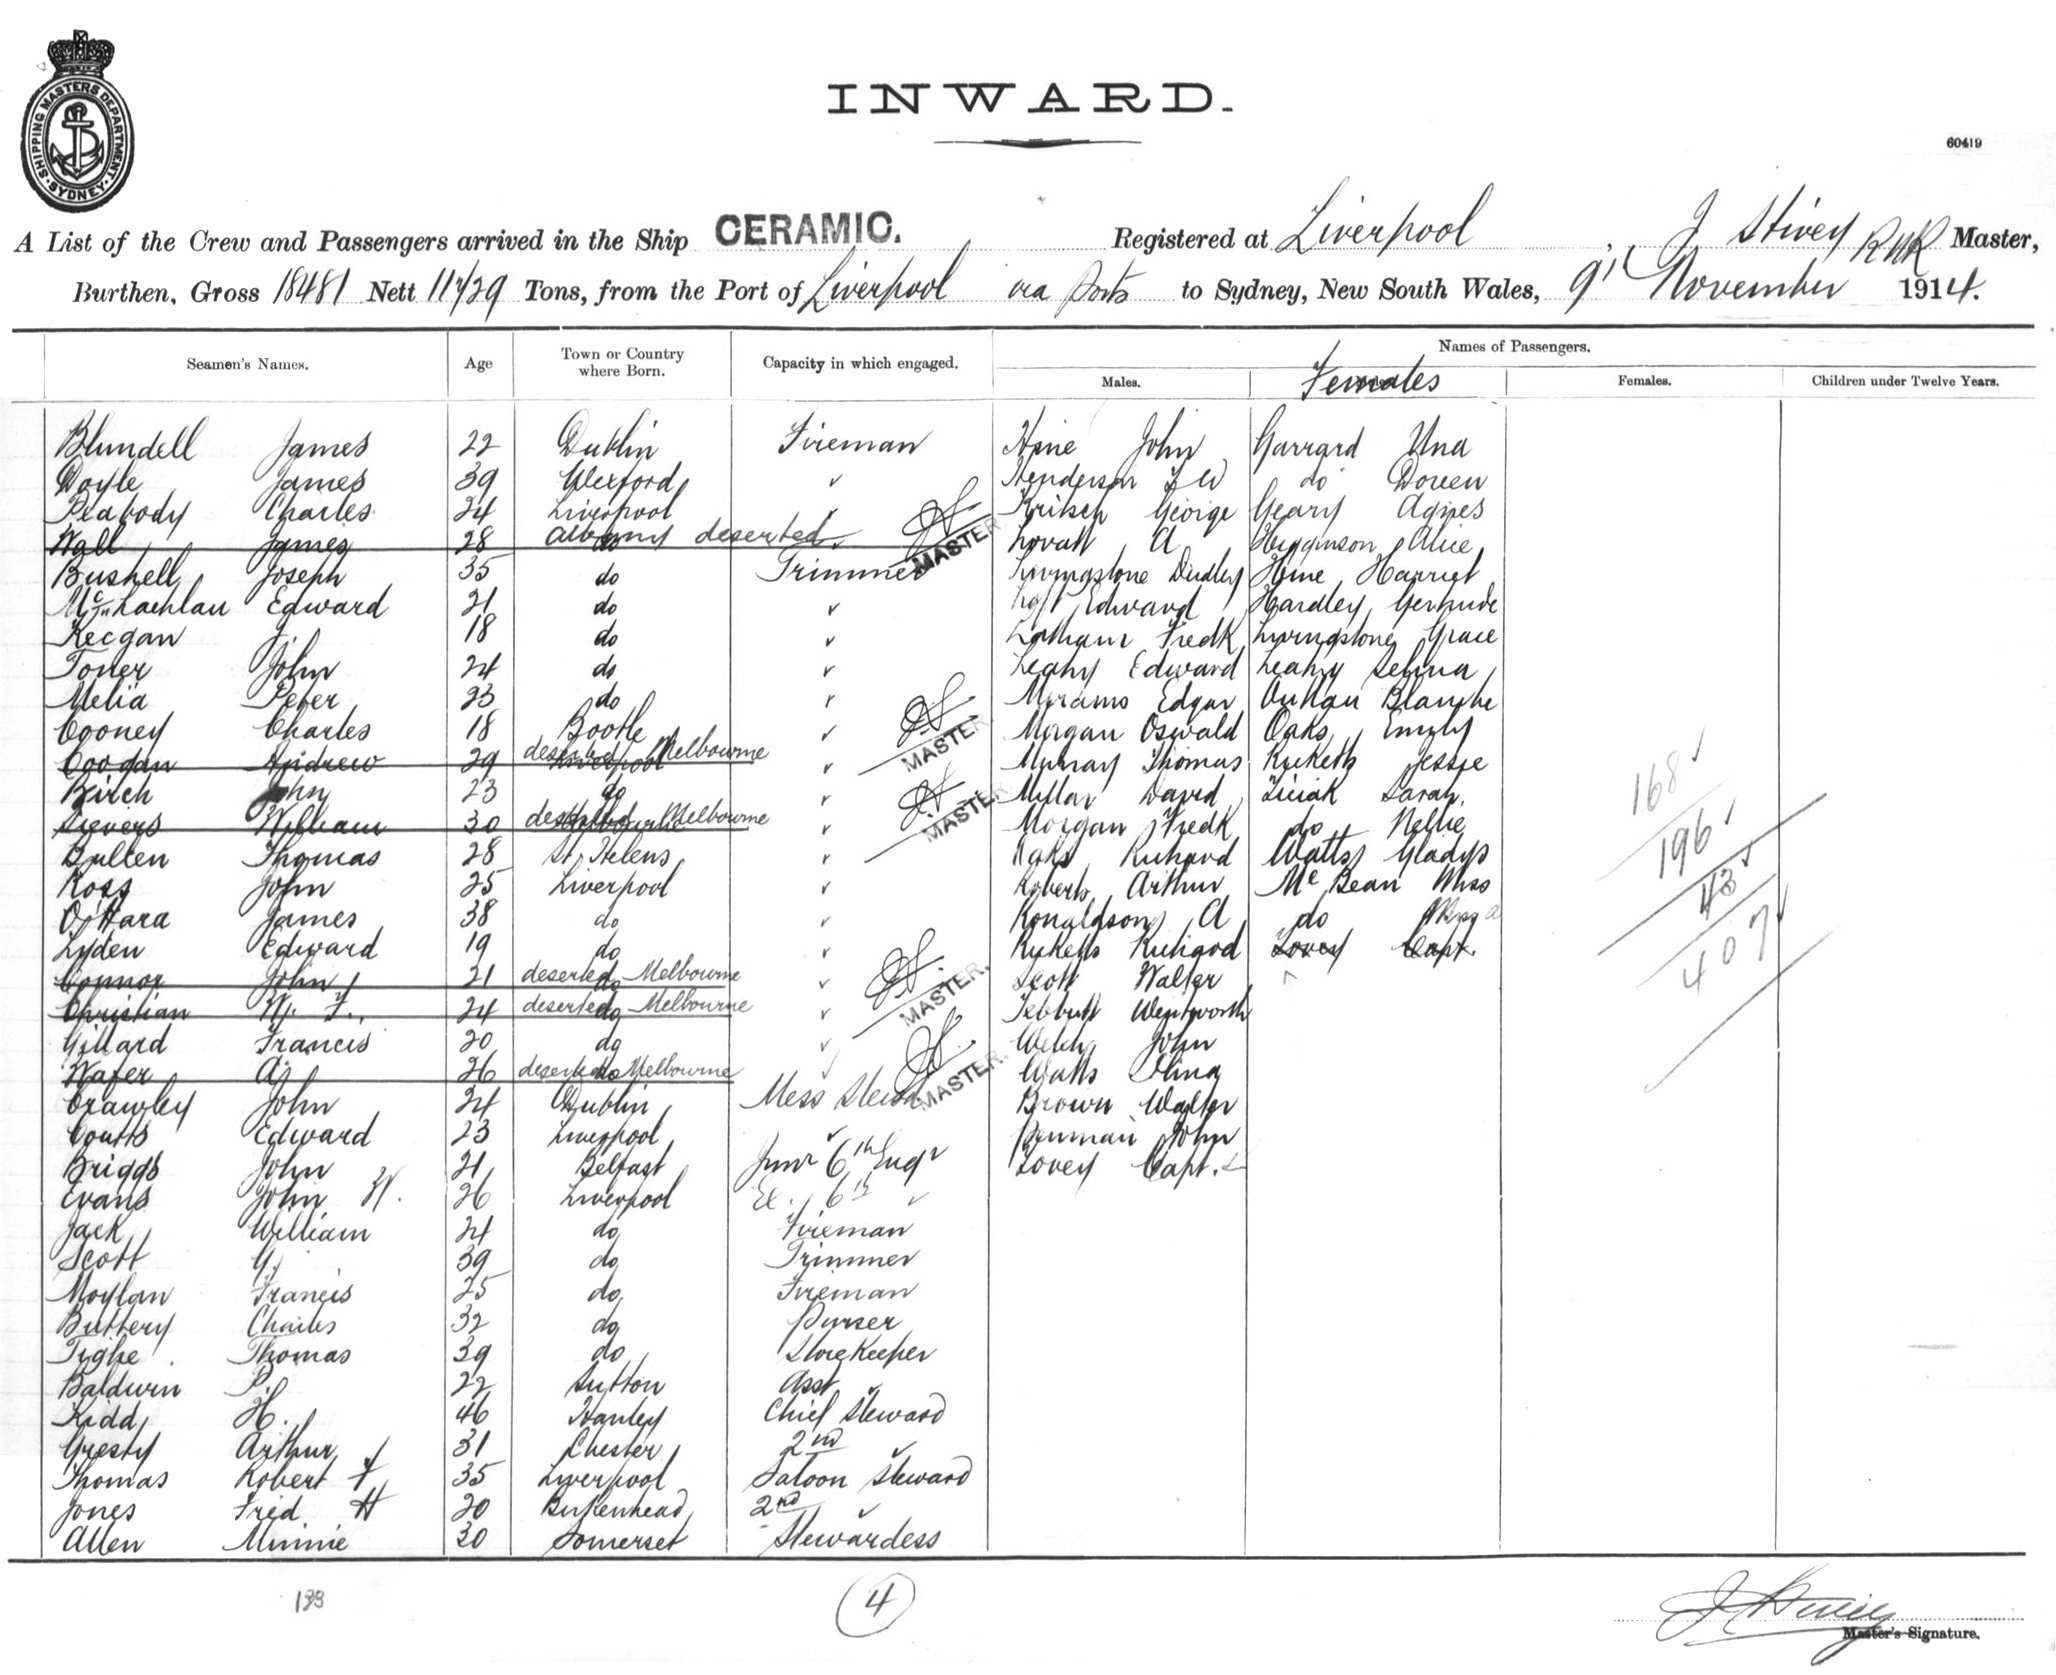 INWARD.
SHIPPING MASTERS DEPARTMENT SYDNEY
60419
A List of the Crew and Passengers arrived in the Ship CERAMIC. Registered at Liverpool, J Stivey RNR Master,
Burthen, Gross 18481 Nett 11729 Tons, from the Port of Liverpool via Ports to Sydney, New South Wales, 9th November 1914.
Seamen's Names. Age Town or Country where Born. Capacity in which engaged. Names of Passengers.
Males. Females Females. Children under Twelve Years.
Blundell James 22 Dublin Fireman Hine John Garrard Una
Doyle James 39 Wexford ✓ Henderson do Doreen
Peabody Charles 24 Liverpool ✓ Kritsch George Geary Agnes
Wall James 28 do Albany deserted ✓ MASTER Lovatt A Higginson Alice
Bushell Joseph 35 do Trimmer Livingstone Dudley Hine Harriet
McLachlan Edward 21 do ✓ Edward Hardley Gertrude
Keegan J. 18 do ✓ Latham Fredk Livingstone Grace
Toner John 24 do ✓ Leahy Edward Leahy Selina
Melia Peter 23 do ✓ Edgar Blanche
Cooney Charles 18 Bootle ✓ MASTER. Morgan Oswald Oaks Emily
Coogan Andrew 29 Liverpool deserted Melbourne ✓ Murray Thomas Ricketts Jessie
Birch John 23 do ✓ MASTER Millar David Sarah
Sievers William 30 deserted Melbourne ✓ Morgan Fredk do Nellie
Bullen Thomas 28 St Helens ✓ Oaks Richard Watts Gladys
Ross John 25 Liverpool ✓ Roberts Arthur McBean Miss
O'Hara James 38 do ✓ Ronaldson A do Miss
Lyden Edward 19 do ✓ Ricketts Richard Lovey Capt.
Connor John 21 do deserted Melbourne ✓ MASTER. Scott Walter
Christian W. F. 24 do deserted Melbourne ✓ Tebbutt Wentworth
Gillard Francis 20 do ✓ Welch John
Wafer A. 26 do deserted Melbourne ✓ MASTER. Watts
Crawley John 24 Dublin Mess Steward Brown Walter
Coutts Edward 23 Liverpool ✓ Penman John
Briggs John 21 Belfast Junr 6th Engr Lovey Capt.
Evans John W. 26 Liverpool Ex. 6th ✓
Jack William 24 do Fireman
Scott G. 39 do Trimmer
Moylan Francis 25 do Fireman
Buttery Charles 32 do Purser
Tighe Thomas 39 do Storekeeper
Baldwin P. 22 Sutton Asst ✓
Kidd H. 46 Hanley Chief Steward
Gresty Arthur 31 Chester 2nd ✓
Thomas Robert 35 Liverpool Saloon Steward
Jones Fred. H 20 Birkenhead 2nd ✓
Allen Minnie 30 Somerset Stewardess
168 ✓
196 ✓
43 ✓
407 ✓
133
4
J Stivey
Master's Signature.